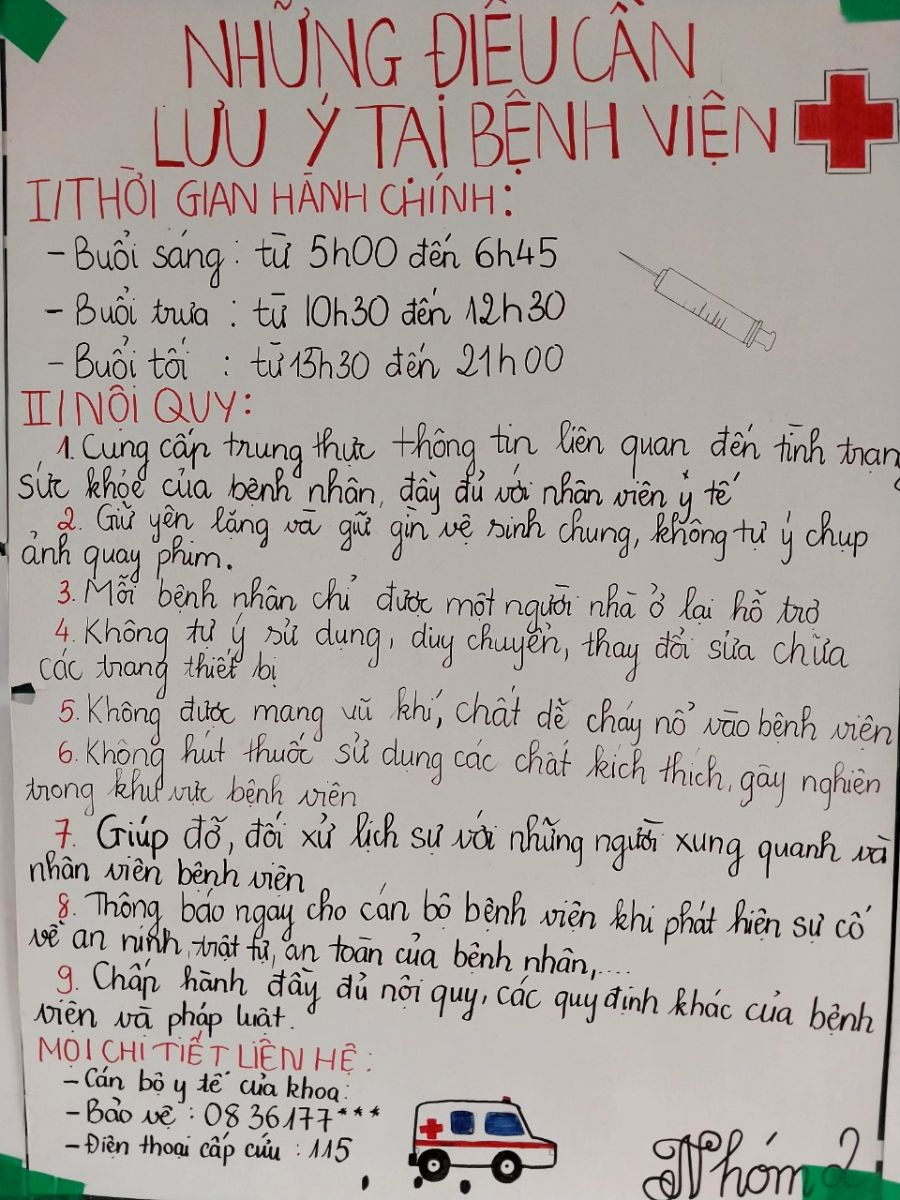 NHỮNG ĐIỀU CẦN
LƯU Ý TẠI BỆNH VIỆN
I/THỜI GIAN HÀNH CHÍNH:
- Buổi sáng: từ 5h00 đến 6h45
- Buổi trưa : từ 10h30 đến 12h30
- Buổi tối : từ 15h30 đến 21h00
II/NỘI QUY:
1. Cung cấp trung thực thông tin liên quan đến tình trạng
sức khỏe của bệnh nhân, đầy đủ với nhân viên y tế
2. Giữ yên lặng và giữ gìn vệ sinh chung, không tự ý chụp
ảnh quay phim.
3. Mỗi bệnh nhân chỉ được một người nhà ở lại hỗ trợ
4. Không tự ý sử dụng, duy chuyển, thay đổi sửa chữa
các trang thiết bị
5. Không được mang vũ khí, chất dễ cháy nổ vào bệnh viện
6. Không hút thuốc sử dụng các chất kích thích, gây nghiện
trong khu vực bệnh viện
7. Giúp đỡ, đối xử lịch sự với những người xung quanh và
nhân viên bệnh viện
8. Thông báo ngay cho cán bộ bệnh viện khi phát hiện sự cố
về an ninh, trật tự, an toàn của bệnh nhân,....
9. Chấp hành đầy đủ nội quy, các quy định khác của bệnh
viện và pháp luật.
MỌI CHI TIẾT LIÊN HỆ:
- Cán bộ y tế của khoa:
- Bảo vệ : 08 36177***
- Điện thoại cấp cứu : 115
Nhóm 2